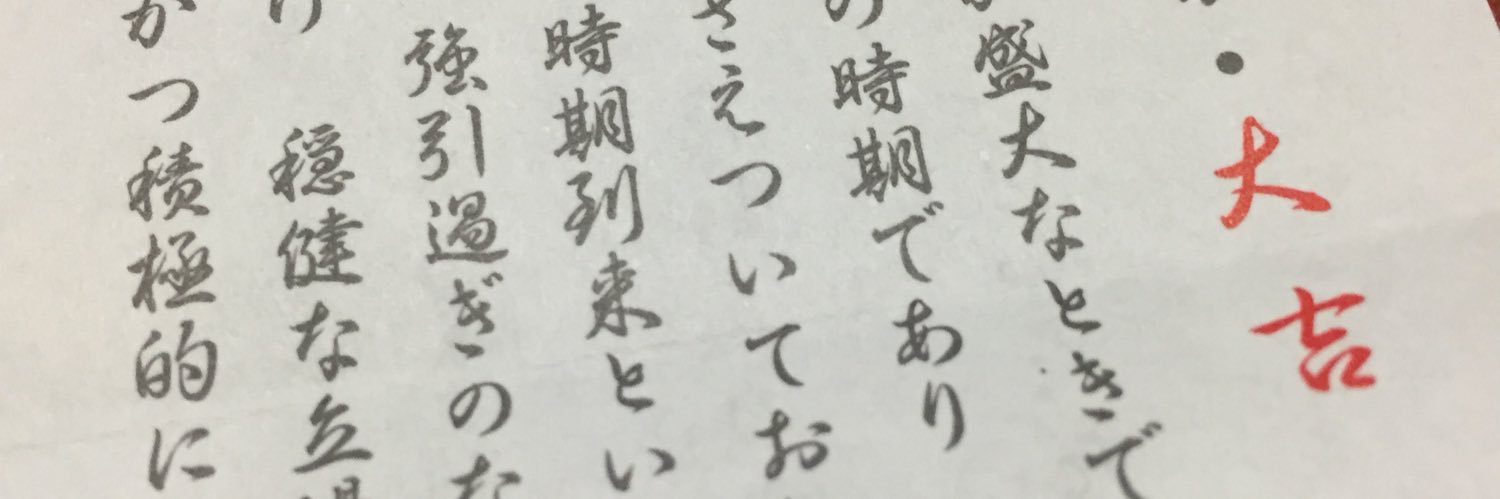 ・大吉
盛大なときで
の時期であり
さえついてお
時期到来とい
強引過ぎのな
穏健な立場
かつ積極的に